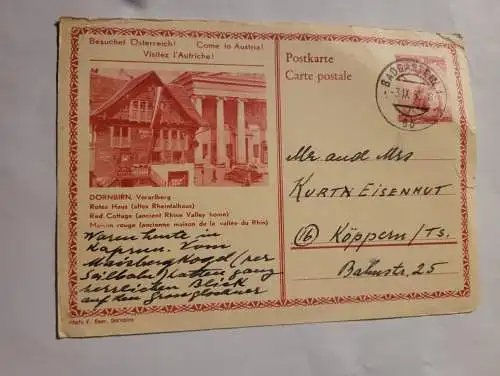 Besuchet Österreich! Come to Austria!
Visitez l'Autriche!
DORNBIRN, Vorarlberg
Rotes Haus (altes Rheintalhaus)
Red Cottage (ancient Rhine Valley home)
Maison rouge (ancienne maison de la vallée du Rhin)
Waren heute in
Kaprun. Vom
Maiskogel (per
Seilbahn) hatten ganz
herrlichen Blick
auf den Grossglockner
Postkarte
Carte postale
BADGASTEIN
Mr and Mrs
KURTH EISENHUT
(16) Köppern/Ts.
Bahnstr. 25